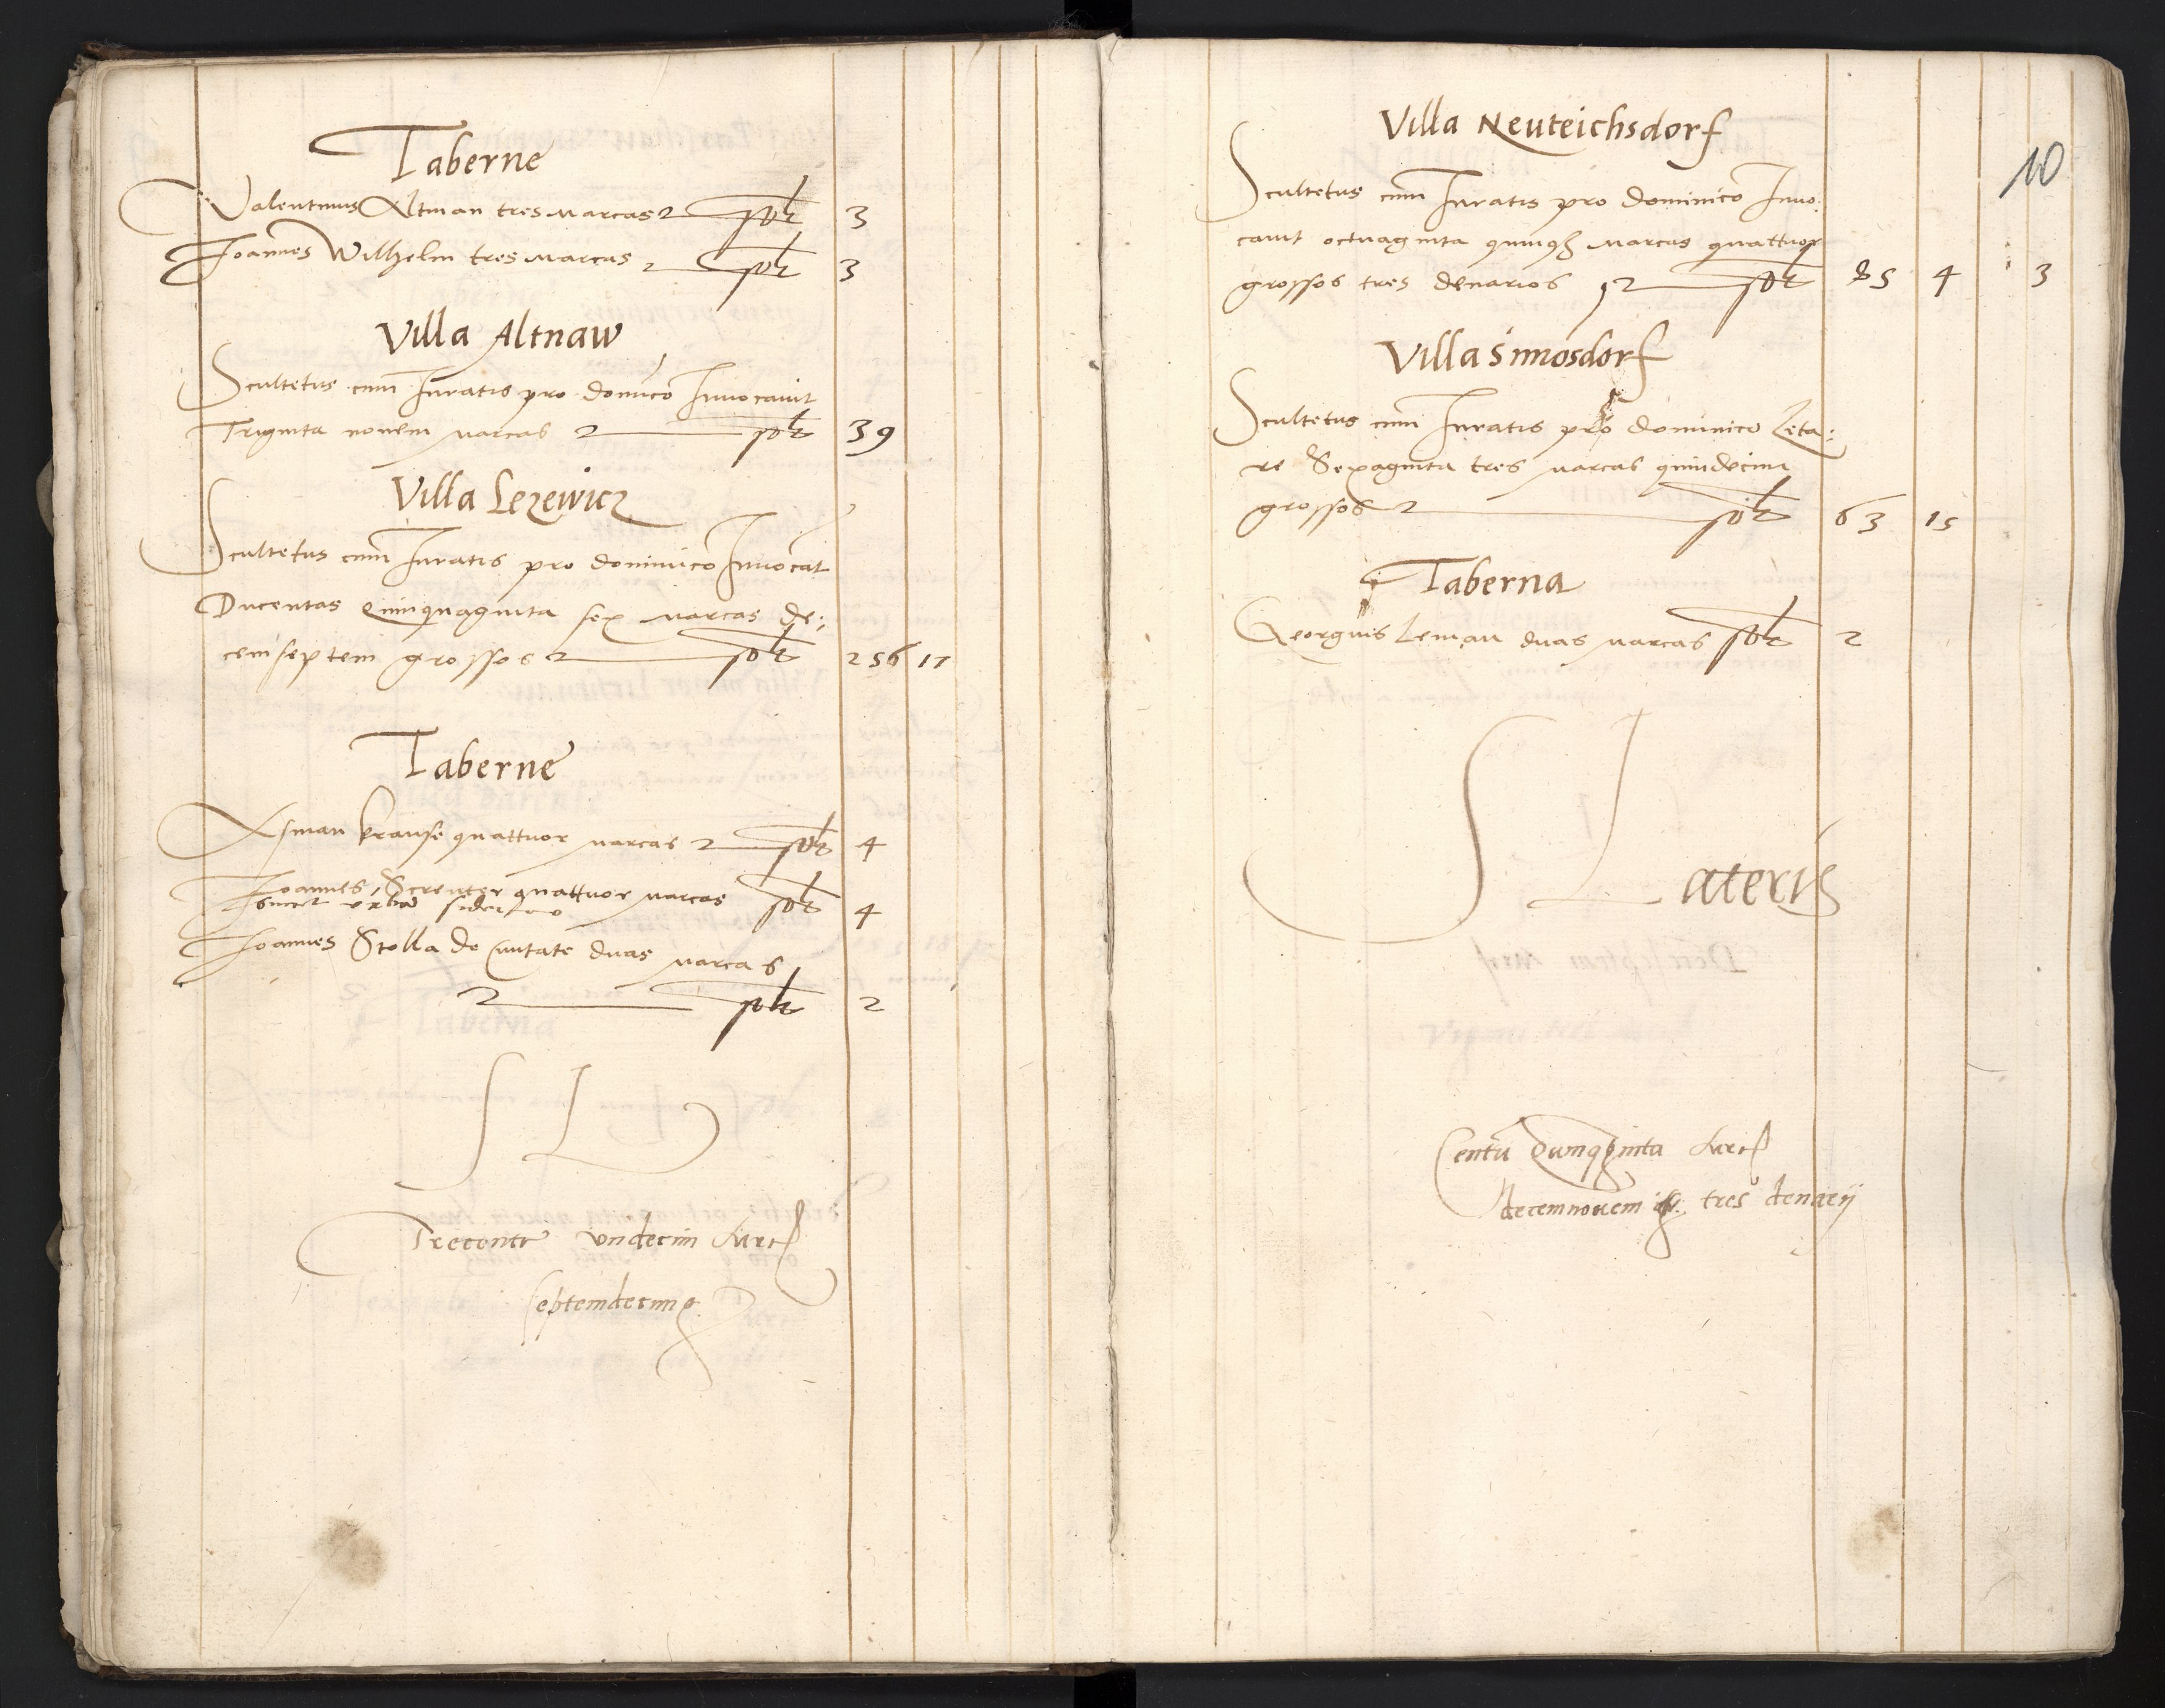 Taberne
Valentinus Altman tres marcas solt 3
Joannes Wilhelm tres marcas solt 3
Villa Altnaw
Scultetus cum Juratis pro domīco Jnuocauit
Triginta nouem marcas solt 39
Villa Lezewicz
Scultetus cum Juratis pro dominico Jnuocat
Ducentas Quinquaginta sex marcas de:
cemseptem grossos solt 256 17
Taberne
Asman Krause quattuor marcas solt 4
Joannes quattuor marcas solt 4
Joannes Stolla de Ciuitate duas marcas
solt 2
S L
Trecente vndecim Mrc
septemdecim g
10
Villa Neuteichsdorf
Scultetus cum Juratis pro dominico Jnuo:
cauit octuaginta quinqz marcas quattuor
grossos tres denarios solt 85 4 3
Villa Simosdorf
Scultetus cum Juratis pro dominico Leta:
re Sexaginta tres marcas quindecim
grossos solt 63 15
Taberna
Georgius Leman duas marcas solt 2
S Lateris
Centū Qumqginta Mrc
decemnouem g tres denarij